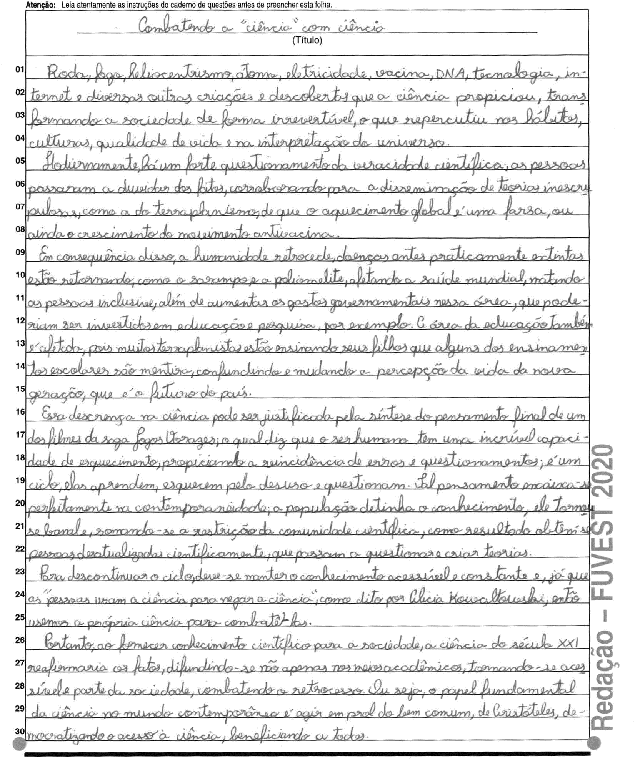 Atenção: Leia atentamente as instruções do caderno de questões antes de preencher esta folha.
Combatendo a "ciência" com ciência
(Título)
01 Roda, fogo, heliocentrismo, átomo, eletricidade, vacina, DNA, tecnologia, in-
02 ternet e diversas outras criações e descobertas que a ciência propiciou, trans
03 formando a sociedade de forma irrevertível, o que repercutiu nos hábitos,
04 culturas, qualidade de vida e na interpretação do universo.
05 Hodiernamente, há um forte questionamento da veracidade científica; as pessoas
06 passaram a duvidar dos fatos, corroborando para a disseminação de teorias inescru
07 pulosas, como a do terraplanismo, de que o aquecimento global é uma farsa, ou
08 ainda o crescimento do movimento antivacina.
09 Em consequência disso, a humanidade retrocede, doenças antes praticamente extintas
10 estão retornando, como o sarampo e a poliomelite, afetando a saúde mundial, matando
11 as pessoas inclusive, além de aumentar os gastos governamentais nessa área, que pode-
12 riam ser investidos em educação e pesquisa, por exemplo. E área da educação também
13 é afetada, pois muitos terraplanistas estão ensinando seus filhos que alguns dos ensiname
14 tos escolares são mentira, confundindo e mudando a percepção da vida da nova
15 geração, que é o futuro do país.
16 Essa descrença na ciência pode ser justificada pela síntese do pensamento final de um
17 dos filmes da saga Jogos Vorazes; o qual diz que o ser humano tem uma incrível capaci-
18 dade de esquecimento, propiciando a reincidência de erros e questionamentos; é um
19 ciclo, elas aprendem, esquecem pelo desuso e questionam. Tal pensamento encaixa-se
20 perfeitamente na contemporaneidade; a população detinha o conhecimento, ele tornou
21 se banal e, somando-se a restrição da comunidade científica, como resultado obtém-se
22 pessoas desatualizadas cientificamente, que passam a questionar e criar teorias.
23 Para descontinuar o ciclo, deve-se manter o conhecimento acessível e constante e, já que
24 as "pessoas usam a ciência para negar a ciência", como dito por Alicia Kowaltowski, então
25 usemos a própria ciência para combatê-los.
26 Portanto, ao fornecer conhecimento científico para a sociedade, a ciência do século XXI
27 reafirmaria os fatos, difundindo-se não apenas nos meios acadêmicos, tornando-se aces
28 sível e parte da sociedade, combatendo o retrocesso. Ou seja, o papel fundamental
29 da ciência no mundo contemporâneo é agir em prol do bem comum, de Aristóteles, de-
30 mocratizando o acesso à ciência, beneficiando a todos.
Redação – FUVEST 2020